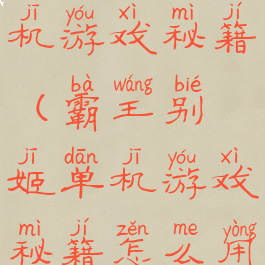 jī yóu xì mì jí
机游戏秘籍
bà wáng bié
(霸王别
jī dān jī yóu xì
姬单机游戏
mì jí zěn me yòng
秘籍怎么用